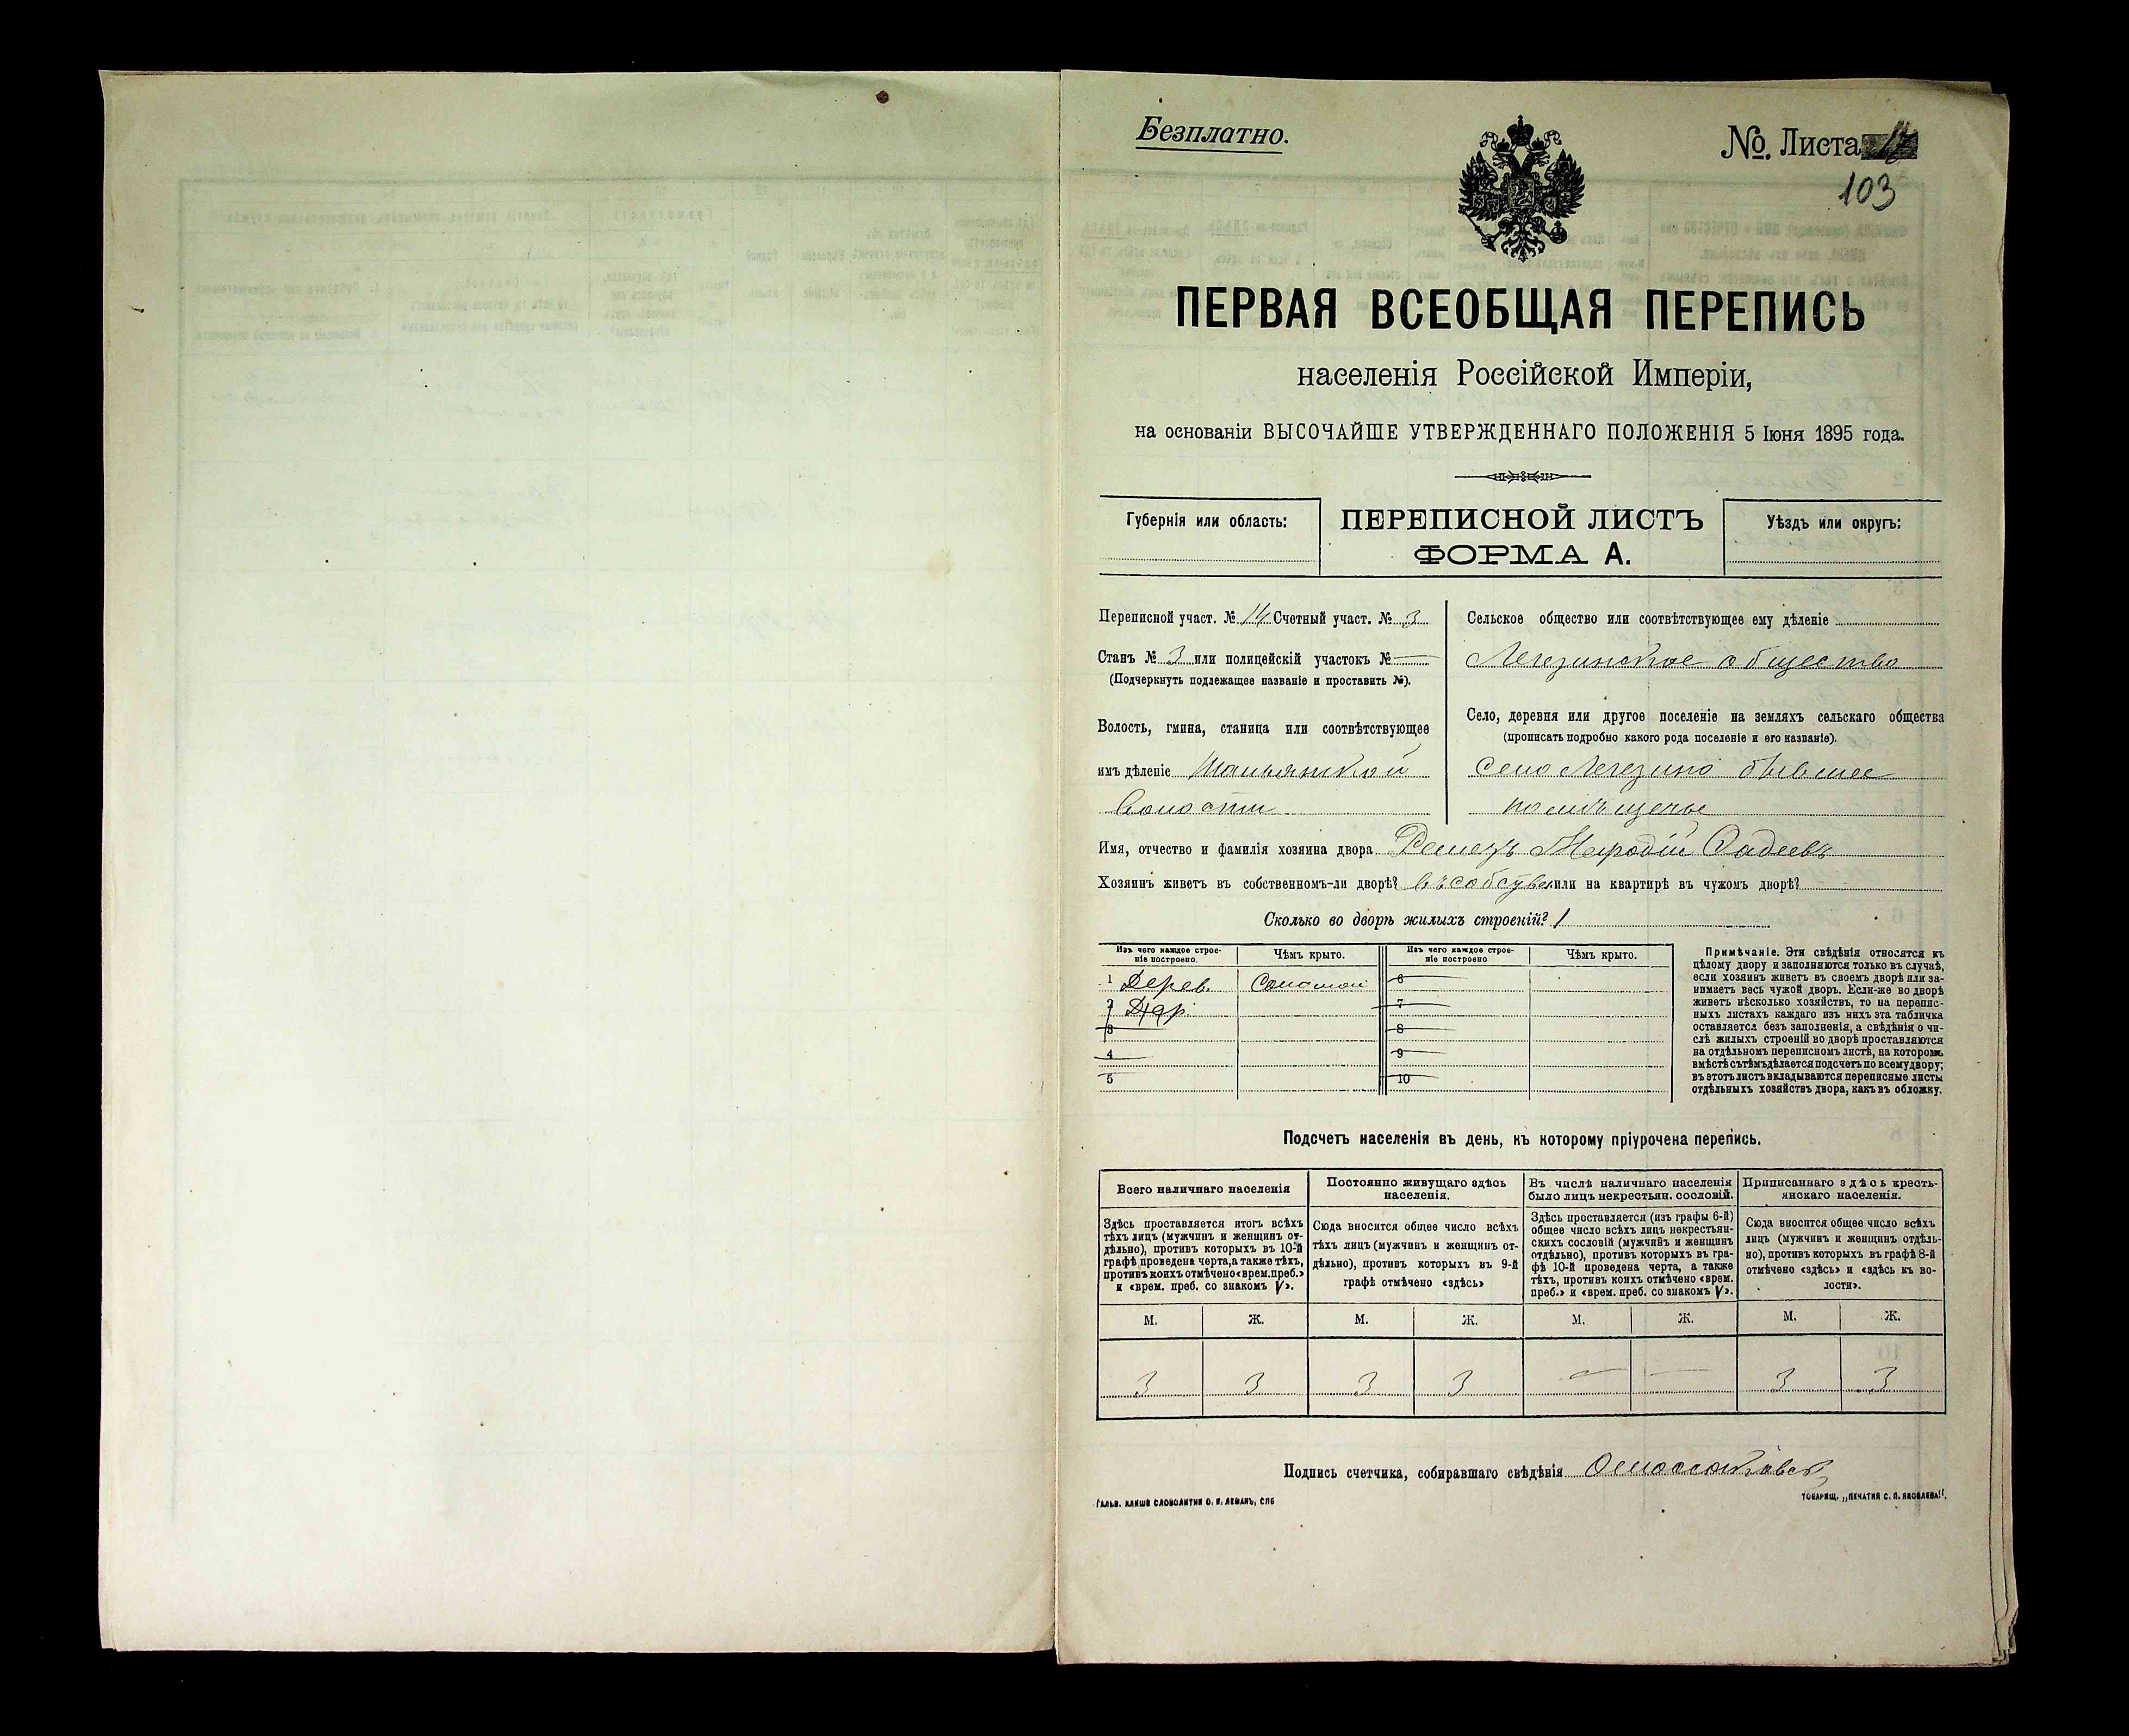 Безплатно.
№ Листа
103
ПЕРВАЯ ВСЕОБЩАЯ ПЕРЕПИСЬ
населенія Россійской Имперіи,
на основаніи ВЫСОЧАЙШЕ УТВЕРЖДЕННАГО ПОЛОЖЕНІЯ 5 Іюня 1895 года.
Губернія или область:
ПЕРЕПИСНОЙ ЛИСТЪ
ФОРМА А.
Уѣздъ или округъ:
Переписной участ. № 14 Счетный участ. № 3
Станъ № 3 или полицейскій участокъ № —
(Подчеркнуть подлежащее названіе и проставить №).
Волость, гмина, станица или соотвѣтствующее
имъ дѣленіе
Волости
Сельское общество или соотвѣтствующее ему дѣленіе
Легезинское общество
Село, деревня или другое поселеніе на земляхъ сельскаго общества
(прописать подробно какого рода поселеніе и его названіе).
Село Легезино бывшее
помѣщечье
Имя, отчество и фамилія хозяина двора
Хозяинъ живетъ въ собственномъ-ли дворѣ? въ собств. или на квартирѣ въ чужомъ дворѣ?
Сколько во дворѣ жилыхъ строеній? 1
Изъ чего каждое строе-
ніе построено.
Чѣмъ крыто.
Изъ чего каждое строе-
ніе построено
Чѣмъ крыто.
1 Дерев. Соломой 6
2 Дер. 7
3 8
4 9
5 10
Примѣчаніе. Эти свѣдѣнія относятся къ
цѣлому двору и заполняются только въ случаѣ,
если хозяинъ живетъ въ своемъ дворѣ или за-
нимаетъ весь чужой дворъ. Если-же во дворѣ
живетъ нѣсколько хозяйствъ, то на перепис-
ныхъ листахъ каждаго изъ нихъ эта табличка
оставляется безъ заполненія, а свѣдѣнія о чи-
слѣ жилыхъ строеній во дворѣ проставляются
на отдѣльномъ переписномъ листѣ, на которомъ
вмѣстѣ съ тѣмъ дѣлается подсчетъ по всему двору;
въ этотъ листъ вкладываются переписные листы
отдѣльныхъ хозяйствъ двора, какъ въ обложку.
Подсчетъ населенія въ день, къ которому пріурочена перепись.
Всего наличнаго населенія
Здѣсь проставляется итогъ всѣхъ
тѣхъ лицъ (мужчинъ и женщинъ от-
дѣльно), противъ которыхъ въ 10-й
графѣ проведена черта, а также тѣхъ,
противъ коихъ отмѣчено «врем. преб.»
и «врем. преб. со знакомъ V».
Постоянно живущаго здѣсь
населенія.
Сюда вносится общее число всѣхъ
тѣхъ лицъ (мужчинъ и женщинъ от-
дѣльно), противъ которыхъ въ 9-й
графѣ отмѣчено «здѣсь»
Въ числѣ наличнаго населенія
было лицъ некрестьян. сословій.
Здѣсь проставляется (изъ графы 6-й)
общее число всѣхъ лицъ некрестьян-
скихъ сословій (мужчинъ и женщинъ
отдѣльно), противъ которыхъ въ гра-
фѣ 10-й проведена черта, а также
тѣхъ, противъ коихъ отмѣчено «врем.
преб.» и «врем. преб. со знакомъ V».
Приписаннаго здѣсь кресть-
янскаго населенія.
Сюда вносится общее число всѣхъ
лицъ (мужчинъ и женщинъ отдѣль-
но), противъ которыхъ въ графѣ 8-й
отмѣчено «здѣсь» и «здѣсь къ во-
лости».
М. Ж. М. Ж. М. Ж. М. Ж.
3 3 3 3 — — 3 3
Подпись счетчика, собиравшаго свѣдѣнія
ГАЛЬВ. КЛИШЕ СЛОВОЛИТНИ О. И. ЛЕМАНЪ, СПБ
ТОВАРИЩ. „ПЕЧАТНЯ С. П. ЯКОВЛЕВА".